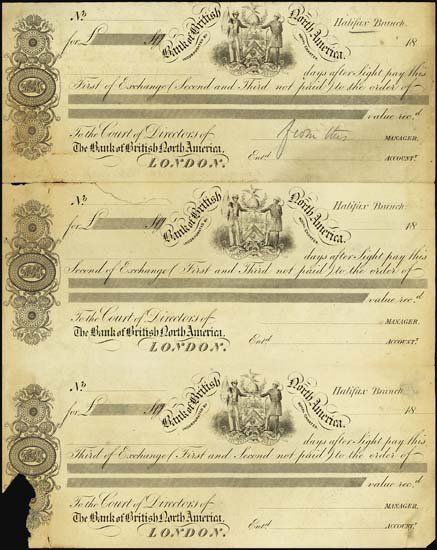 No
Bank of British North America.
Incorporated by Royal Charter.
Halifax Branch
for £
18
days after Sight pay this
First of Exchange (Second and Third not paid) to the order of
value recd
To the Court of Directors of
from the
MANAGER.
The Bank of British North America,
LONDON.
Entd
ACCOUNTt
No
Bank of British North America.
Incorporated by Royal Charter.
Halifax Branch
for £
18
days after Sight pay this
Second of Exchange (First and Third not paid) to the order of
value recd
To the Court of Directors of
MANAGER.
The Bank of British North America,
LONDON.
Entd
ACCOUNTt
No
Bank of British North America.
Incorporated by Royal Charter.
Halifax Branch
for £
18
days after Sight pay this
Third of Exchange (First and Second not paid) to the order of
value recd
To the Court of Directors of
MANAGER.
The Bank of British North America,
LONDON.
Entd
ACCOUNTt